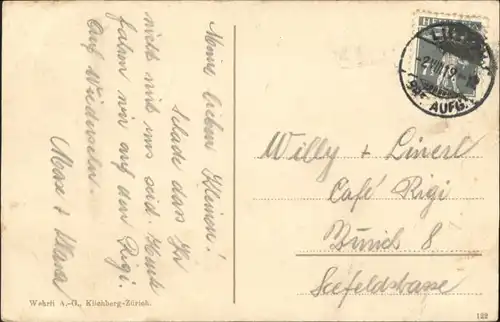 Meine lieben Kleinen!
Schade dass Ihr
nicht mit uns seid. Heute
fahren wir auf den Rigi.
Auf Wiedersehn.
Max + Klara
Willy + Linerl
Café Rigi
Zürich 8
Seefeldstrasse
LUZERN
AUFG.
Wehrli A.-G., Kilchberg-Zürich.
122